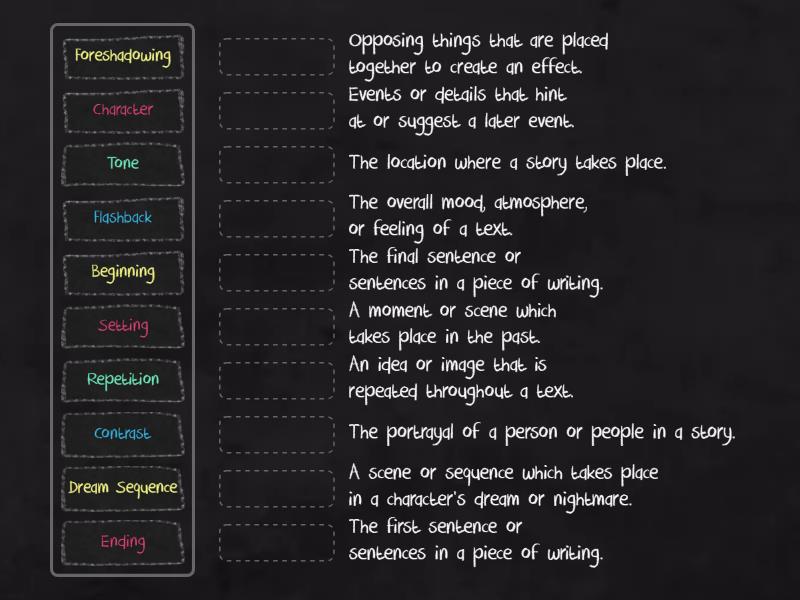 Foreshadowing
Character
Tone
Flashback
Beginning
Setting
Repetition
Contrast
Dream Sequence
Ending
Opposing things that are placed
together to create an effect.
Events or details that hint
at or suggest a later event.
The location where a story takes place.
The overall mood, atmosphere,
or feeling of a text.
The final sentence or
sentences in a piece of writing.
A moment or scene which
takes place in the past.
An idea or image that is
repeated throughout a text.
The portrayal of a person or people in a story.
A scene or sequence which takes place
in a character's dream or nightmare.
The first sentence or
sentences in a piece of writing.